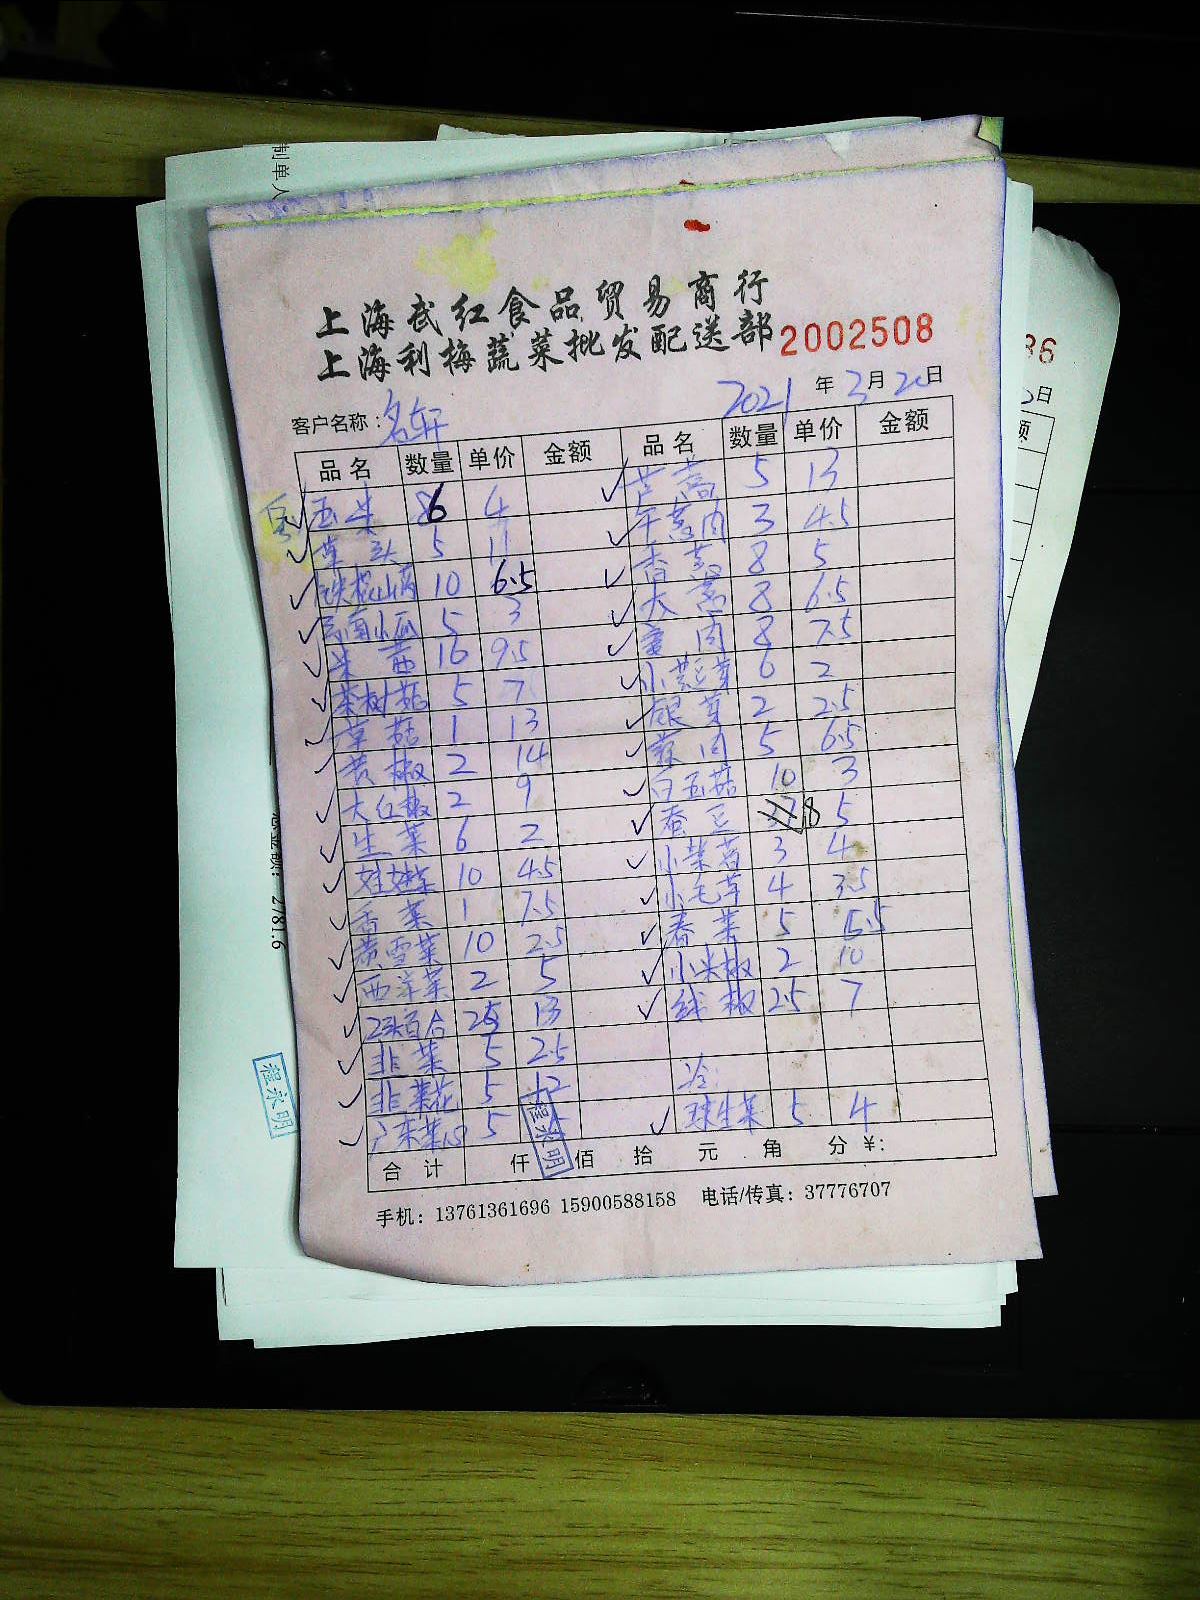 制单人
上海武红食品贸易商行
上海利梅蔬菜批发配送部 2002508
客户名称：名轩 2021年3月20日
品名 数量 单价 金额 品名 数量 单价 金额
玉米 6 4 芦蒿 5 13
草头 5 11 平菇肉 3 4.5
铁棍山药 10 6.5 香菇 8 5
云南小瓜 5 3 大葱 8 6.5
米苋 16 9.5 姜肉 8 7.5
茶树菇 5 7 小黄豆芽 6 2
草菇 1 13 银芽 2 2.5
黄椒 2 14 蒜肉 5 6.5
大红椒 2 9 白玉菇 10 3
生菜 6 2 蚕豆 18 5
娃娃菜 10 4.5 小米苔 3 4
香菜 1 7.5 小毛草 4 3.5
黄雪菜 10 2.5 春菜 5 5.5
西洋菜 2 5 小米椒 2 10
2头百合 25 13 线椒 2.5 7
韭菜 5 2.5
韭菜花 5 12 冷：
广东菜心 5 球生菜 5 4
合计 仟 佰 拾 元 角 分 ¥:
程永明
手机：13761361696 15900588158 电话/传真：37776707
程永明
2781.6
36
日
额